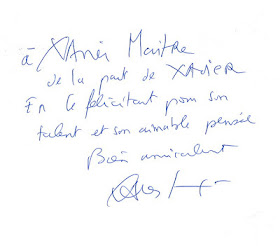 à Xavier Maître
de la part de XAVIER
En le félicitant pour son
talent et son aimable pensée
Bien amicalement